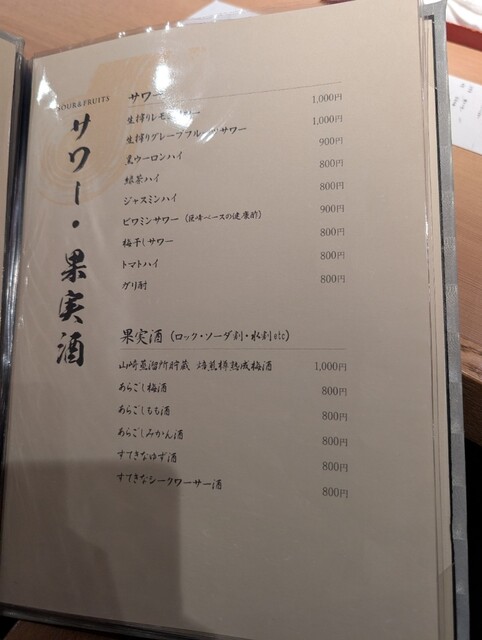 SOUR&FRUITS
サワー・果実酒
サワー
生搾りレモンサワー 1,000円
生搾りグレープフルーツサワー 1,000円
黒ウーロンハイ 900円
緑茶ハイ 800円
ジャスミンハイ 800円
ビワミンサワー (巨峰ベースの健康酢) 900円
梅干しサワー 800円
トマトハイ 800円
ガリ酎 800円
果実酒 (ロック・ソーダ割・水割etc)
山崎蒸溜所貯蔵 焙煎樽熟成梅酒 1,000円
あらごし梅酒 800円
あらごしもも酒 800円
あらごしみかん酒 800円
すてきなゆず酒 800円
すてきなシークワーサー酒 800円